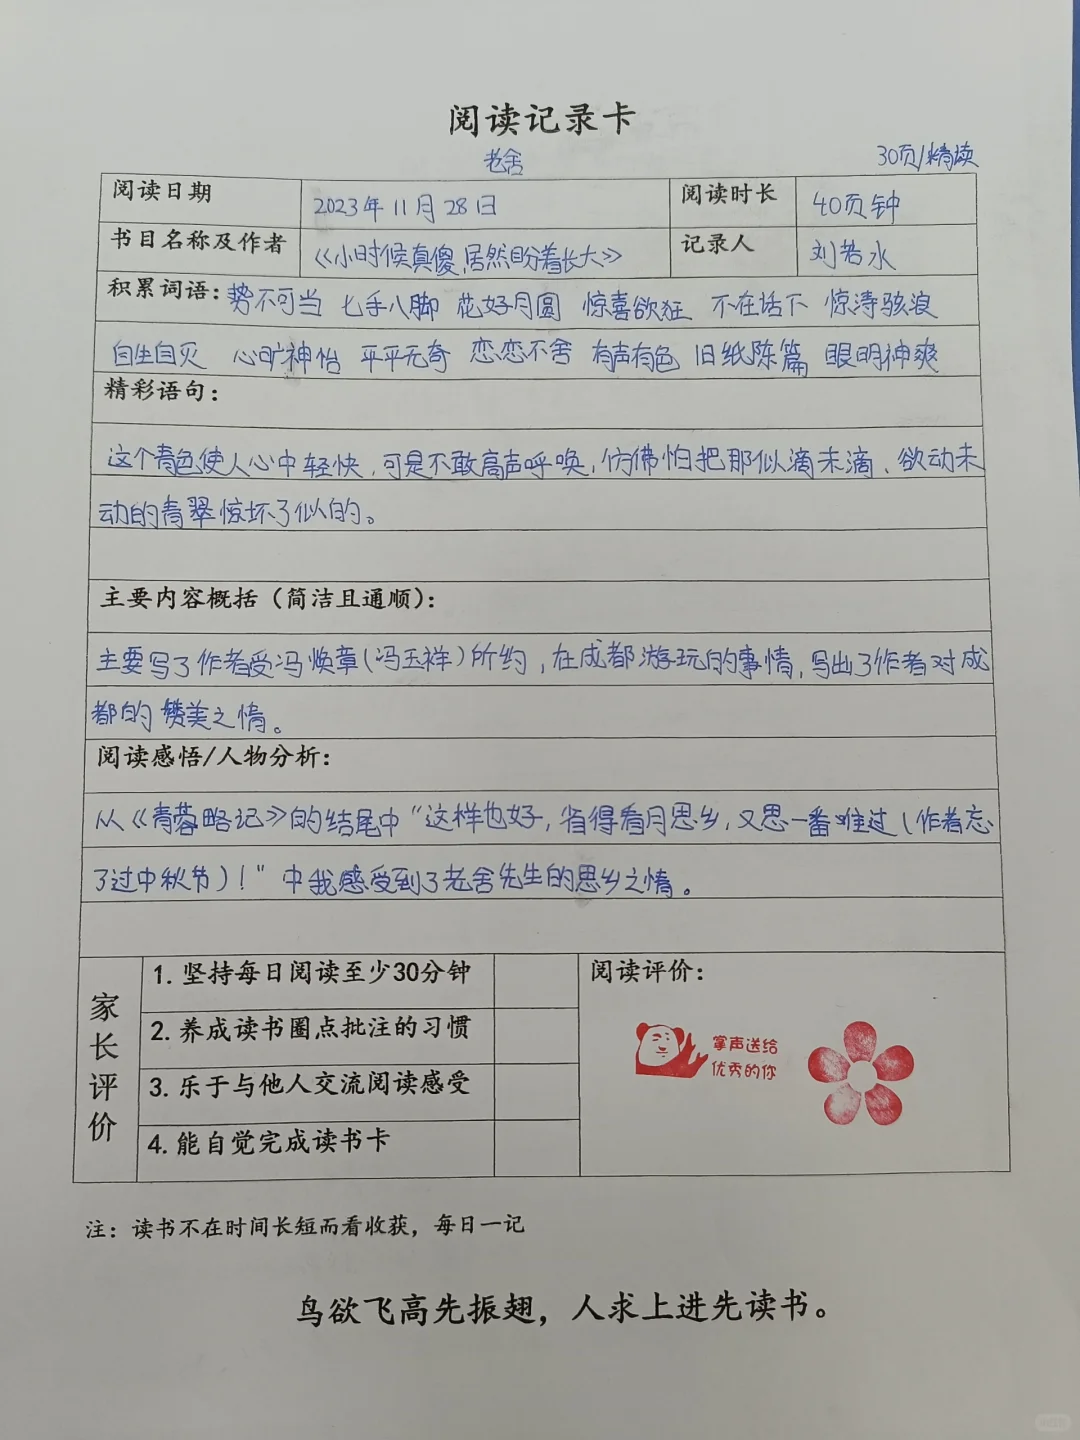 阅读记录卡
老舍
30页/精读
阅读日期 2023年11月28日 阅读时长 40页钟
书目名称及作者 《小时候真傻,居然盼着长大》 记录人 刘若水
积累词语: 势不可当 七手八脚 花好月圆 惊喜欲狂 不在话下 惊涛骇浪
自生自灭 心旷神怡 平平无奇 恋恋不舍 有声有色 旧纸陈篇 眼明神爽
精彩语句:
这个青色使人心中轻快,可是不敢高声呼唤,仿佛怕把那似滴未滴、欲动未
动的青翠惊坏了似的。
主要内容概括(简洁且通顺):
主要写了作者受冯焕章(冯玉祥)所约,在成都游玩的事情,写出了作者对成
都的赞美之情。
阅读感悟/人物分析:
从《青蓉略记》的结尾中“这样也好,省得看月思乡,又思一番难过(作者忘
了过中秋节)!”中我感受到了老舍先生的思乡之情。
家长评价
1. 坚持每日阅读至少30分钟
2. 养成读书圈点批注的习惯
3. 乐于与他人交流阅读感受
4. 能自觉完成读书卡
阅读评价:
掌声送给
优秀的你
注: 读书不在时间长短而看收获, 每日一记
鸟欲飞高先振翅, 人求上进先读书。